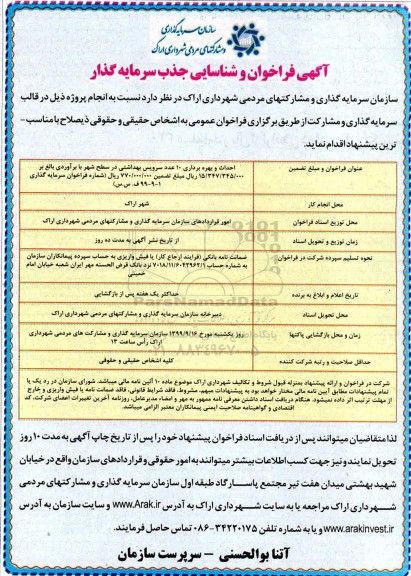 سازمان سرمایه گذاری
و مشارکتهای مردمی شهرداری اراک
آگهی فراخوان و شناسایی جذب سرمایه گذار
سازمان سرمایه گذاری و مشارکتهای مردمی شهرداری اراک در نظر دارد نسبت به انجام پروژه ذیل در قالب
سرمایه گذاری و مشارکت از طریق برگزاری فراخوان عمومی به اشخاص حقیقی و حقوقی ذیصلاح با مناسب-
ترین پیشنهاد اقدام نماید.
عنوان فراخوان و مبلغ تضمین
احداث و بهره برداری ۱۰ عدد سرویس بهداشتی در سطح شهر با برآوردی بالغ بر
۱۵/۳۴۷/۳۴۵/۰۰۰ ریال مبلغ تضمین ۷۷۰/۰۰۰/۰۰۰ ریال (شماره فراخوان سرمایه گذاری
۱-۹۹-۹ ف. س. س)
محل انجام کار
شهر اراک
محل توزیع اسناد فراخوان
امور قراردادهای سازمان سرمایه گذاری و مشارکتهای مردمی شهرداری اراک
زمان توزیع و تحویل اسناد
از تاریخ نشر آگهی به مدت ده روز
نحوه تسلیم سپرده شرکت در فراخوان
ضمانت نامه بانکی (فرایند ارجاع کار) یا فیش واریزی به حساب سپرده پیمانکاران سازمان
به شماره حساب ۷۰۱۸/۱۱/۶۰۴۲۹۶۲/۱ نزد بانک قرض الحسنه مهر ایران شعبه خیابان امام
خمینی
تاریخ اعلام و ابلاغ به برنده
حداکثر یک هفته پس از بازگشایی
محل تحویل اسناد
دبیرخانه سازمان سرمایه گذاری و مشارکتهای مردمی شهرداری اراک
زمان و محل بازگشایی پاکتها
روز یکشنبه مورخ ۱۳۹۹/۹/۱۶ سازمان سرمایه گذاری و مشارکت های مردمی شهرداری
اراک راس ساعت ۱۳
حداقل صلاحیت و رتبه شرکت کننده
کلیه اشخاص حقیقی و حقوقی
شرکت در فراخوان و ارائه پیشنهاد بمنزله قبول شروط و تکالیف شهرداری اراک موضوع ماده ۱۰ آئین نامه مالی میباشد. شورای سازمان در رد یک یا
تمام پیشنهادات مطابق آیین نامه مالی مختار خواهد بود به پیشنهادات مبهم، مشروط، فاقد شرایط قانونی، فاقد ضمانت نامه یا فیش واریزی و خارج
از مهلت ترتیب اثر داده نمیشود. هنگام دریافت اسناد داشتن معرفی نامه ممهور به مهر و امضاء مدیرعامل، روزنامه آخرین تغییرات اعضای شرکت، کد
اقتصادی و گواهینامه صلاحیت ایمنی پیمانکاران معتبر الزامی میباشد.
لذا متقاضیان میتوانند پس از دریافت اسناد فراخوان پیشنهاد خود را پس از تاریخ چاپ آگهی به مدت ۱۰ روز
تحویل نمایند و نیز جهت کسب اطلاعات بیشتر میتوانند به امور حقوقی و قراردادهای سازمان واقع در خیابان
شهید بهشتی میدان هفت تیر مجتمع پاسارگاد طبقه اول سازمان سرمایه گذاری و مشارکتهای مردمی
شهرداری اراک مراجعه یا به سایت شهرداری اراک به آدرس www.Arak.ir و سایت سازمان به آدرس
www.arakinvest.ir و یا به شماره تلفن ۳۴۲۲۰۱۷۵-۰۸۶ تماس حاصل فرمایند.
آتنا بوالحسنی - سرپرست سازمان